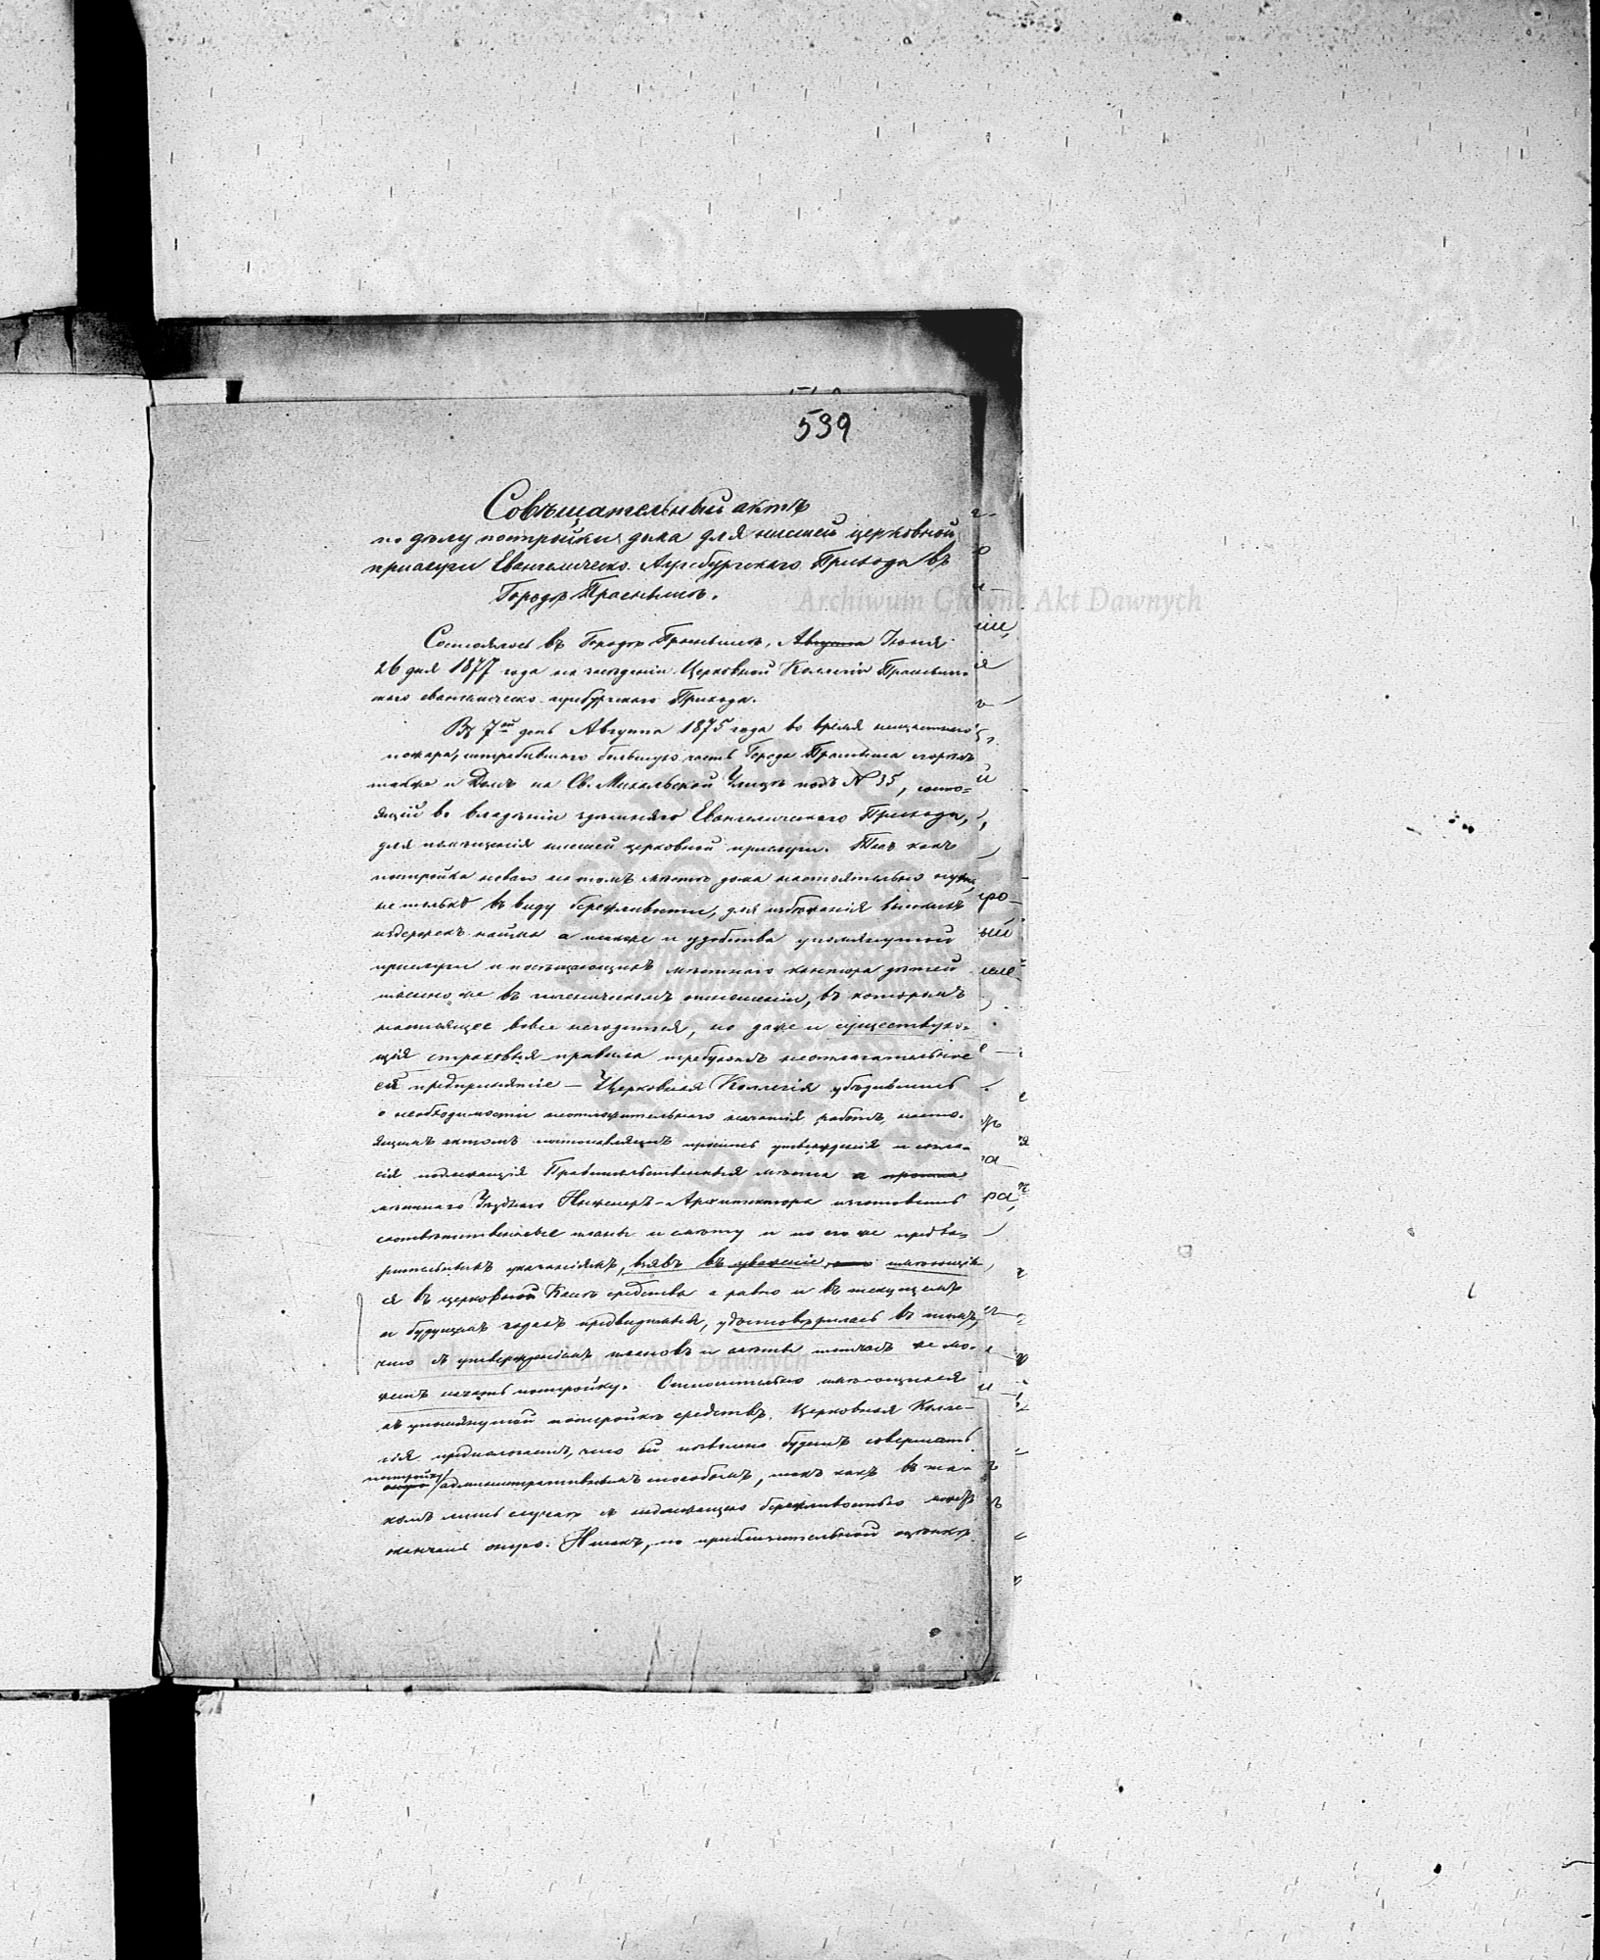 539
Совѣщательный актъ
по дѣлу постройки дома для низшей церковной
прислуги Евангелическо-Аугсбургскаго Прихода въ
Городѣ Праснышѣ.
Состоялся въ Городѣ Праснышѣ, Августа Іюня
26 дня 1877 года на засѣданіи Церковной Коллегіи Прасныш-
скаго евангелическо-аугсбургскаго Прихода.
Въ 7ой день Августа 1875 года во время несчастнаго
пожара, истребившаго большую часть Города Прасныша сгорѣлъ
также и Домъ на Св. Михальской Улицѣ подъ № 35, состо=
ящій во владѣніи здѣшняго Евангелическаго Прихода,
для помѣщенія низшей церковной прислуги. Такъ какъ
постройка новаго на томъ мѣстѣ дома настоятельно нужна,
не только въ виду бережливости, для избѣжанія высокихъ
издержекъ найма а также и удобства упомянутой
прислуги и посѣщающихъ мѣстнаго кантора дѣтей
также въ гигіеническомъ отношеніи, въ которомъ
настоящее вовсе негодится, но даже и существую-
щія страховыя правила требуютъ неотлагательное
сіе предпріятіе — Церковная Коллегія убѣдившись
о необходимости неотложительнаго начатія работъ, насто-
ящимъ актомъ постановляетъ просить утвержденія и согла-
сія надлежащія Правительственныя мѣста а
мѣстнаго Уѣзднаго Инженеръ-Архитектора изготовить
соотвѣтственные планы и смѣту и по его же предва-
рительнымъ указаніямъ, взявъ въ уваженіе имѣющія-
ся въ церковной Кассѣ средства а равно и въ текущемъ
и будущихъ годахъ предвидимыя, удостовѣрилась въ томъ,
что съ утвержденіемъ плановъ и смѣты тотчасъ же мо-
жетъ начать постройку. Относительно имѣющихся
къ упомянутой постройкѣ средствъ, Церковная Колле-
гія предполагаетъ, что ей позволено будетъ совершать
постройку
административнымъ способомъ, такъ какъ въ та-
комъ лишь случаѣ съ надлежащею бережливостью можетъ
окончить оную. Итакъ, по приблизительной оцѣнкѣ
Archiwum Główne Akt Dawnych
Archiwum Główne Akt Dawnych